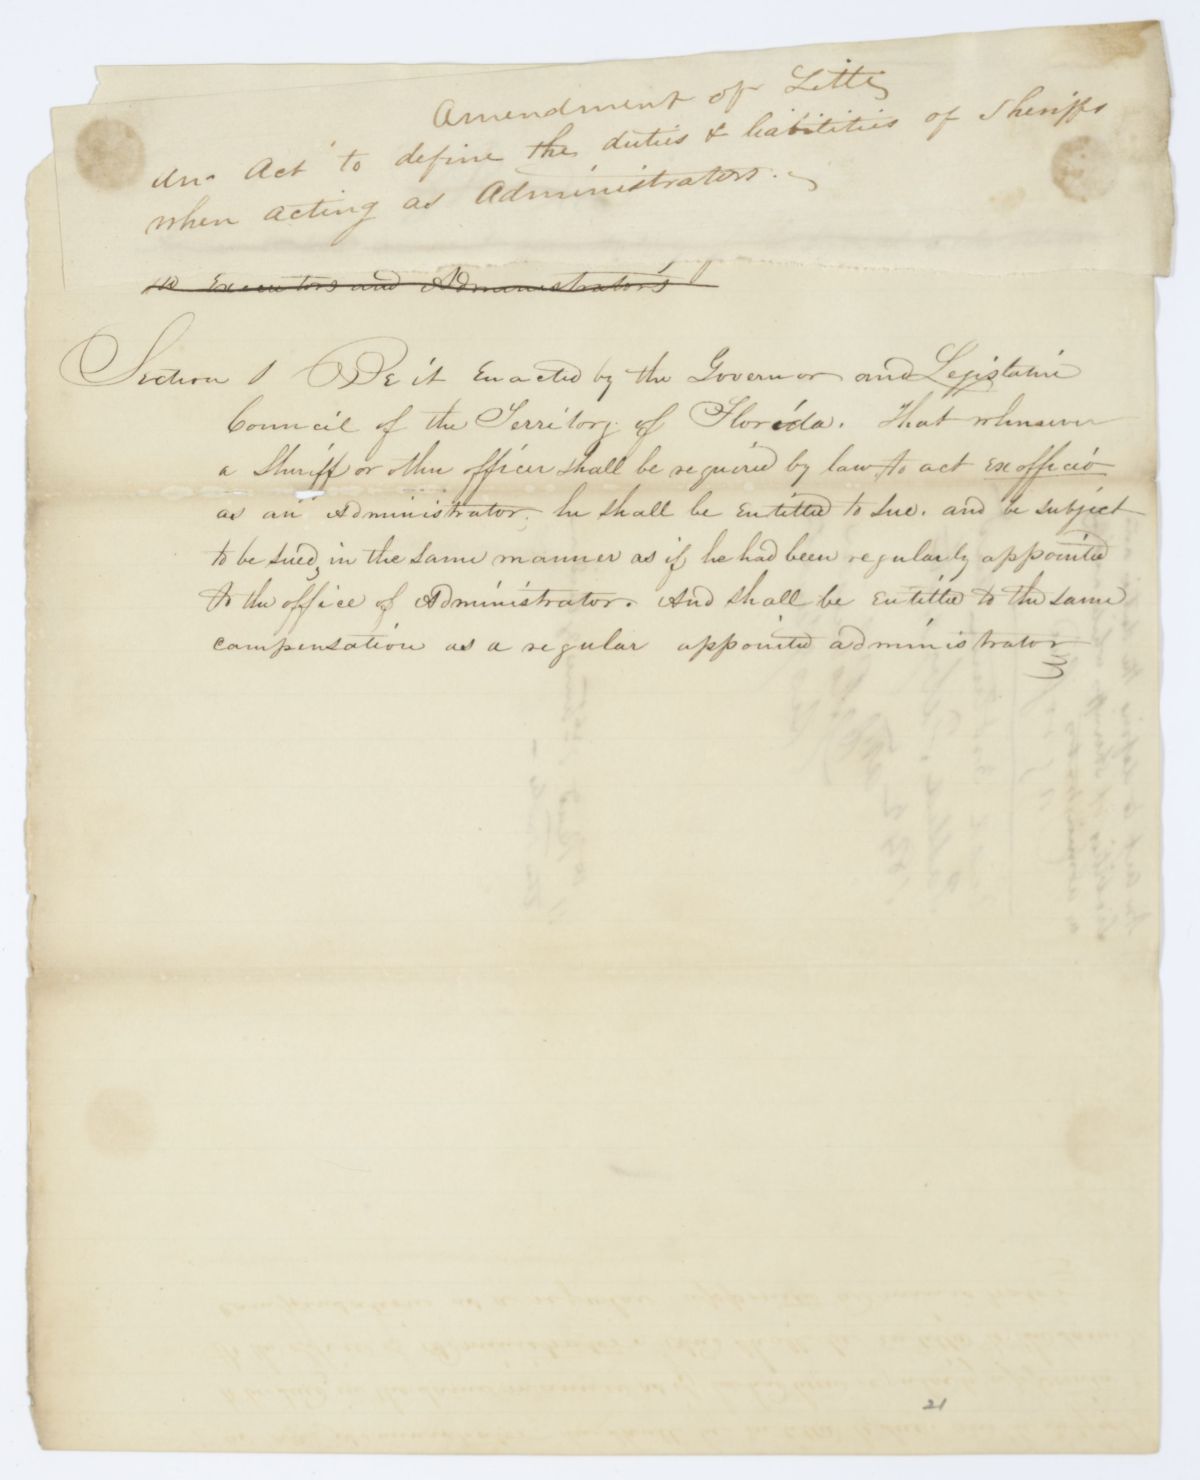 Amendment of Title
An Act to define the duties & liabilities of Sheriffs
when acting as Administrators.
to Executors and Administrators
Section 1 Be it Enacted by the Governor and Legislative
Council of the Territory of Florida. That whensever
a Sheriff or other officer shall be required by law to act ex officio
as an Administrator, he shall be Entitled to sue. and be subject
to be sued, in the same manner as if he had been regularly appointed
to the office of Administrator. And shall be Entitled to the same
compensation as a regular appointed administrator
21